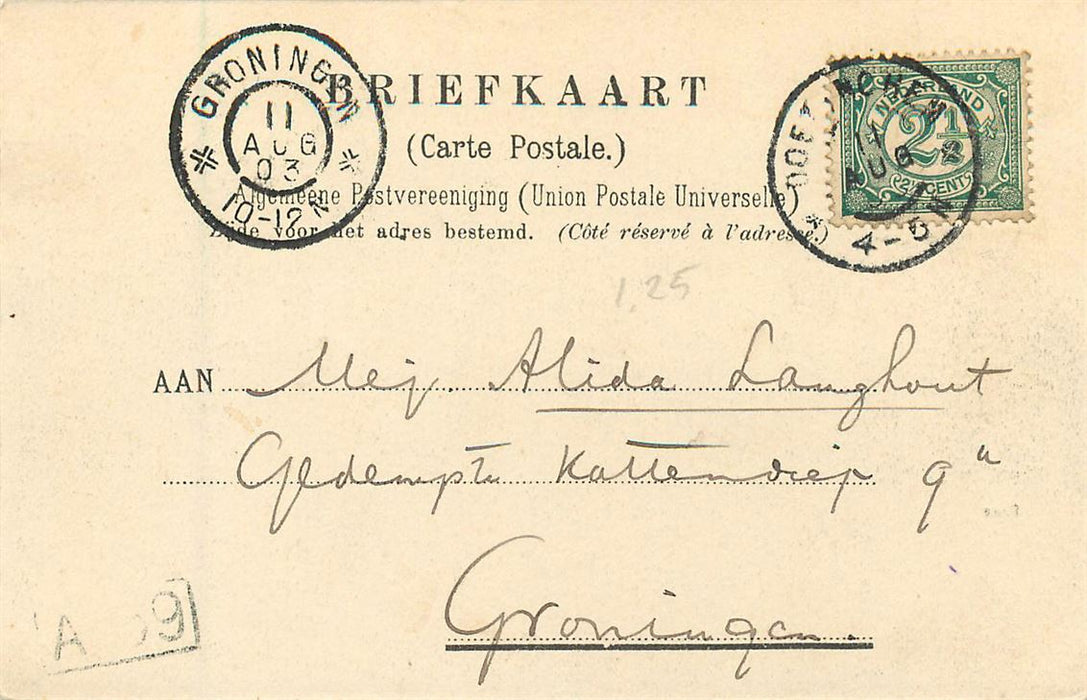 GRONINGEN
11
AUG
03
10-12 N
BRIEFKAART
(Carte Postale.)
Algemeene Postvereeniging (Union Postale Universelle)
Zijde voor het adres bestemd. (Côté réservé à l'adresse.)
NEDERLAND
2½
2½ CENT
DOETINCHEM
11
AUG
4-5N
1,25
AAN Mej. Alida Langhout
Gedempte Kattendiep 9a
Groningen.
A 9